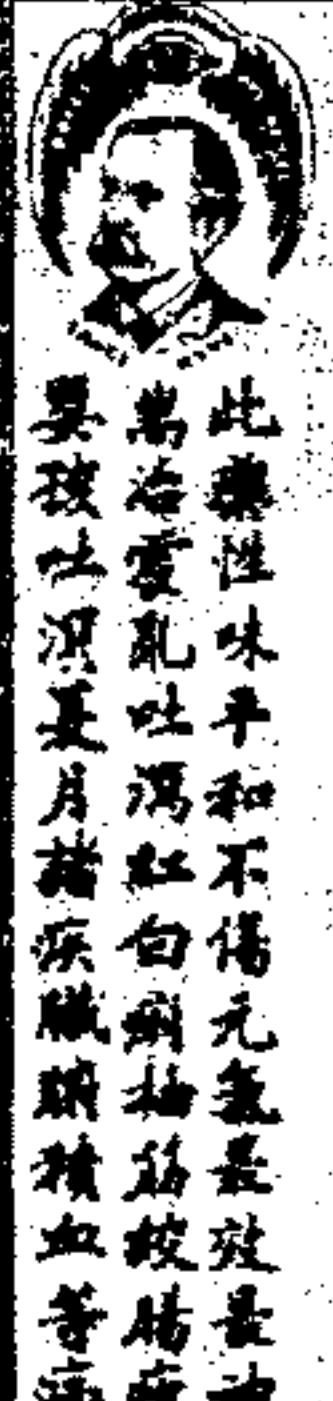 此藥性味平和不傷元氣最效最
耑治霍亂吐瀉紅白痢抽筋絞腸
嬰孩吐夏月諸疾臟腑積血等